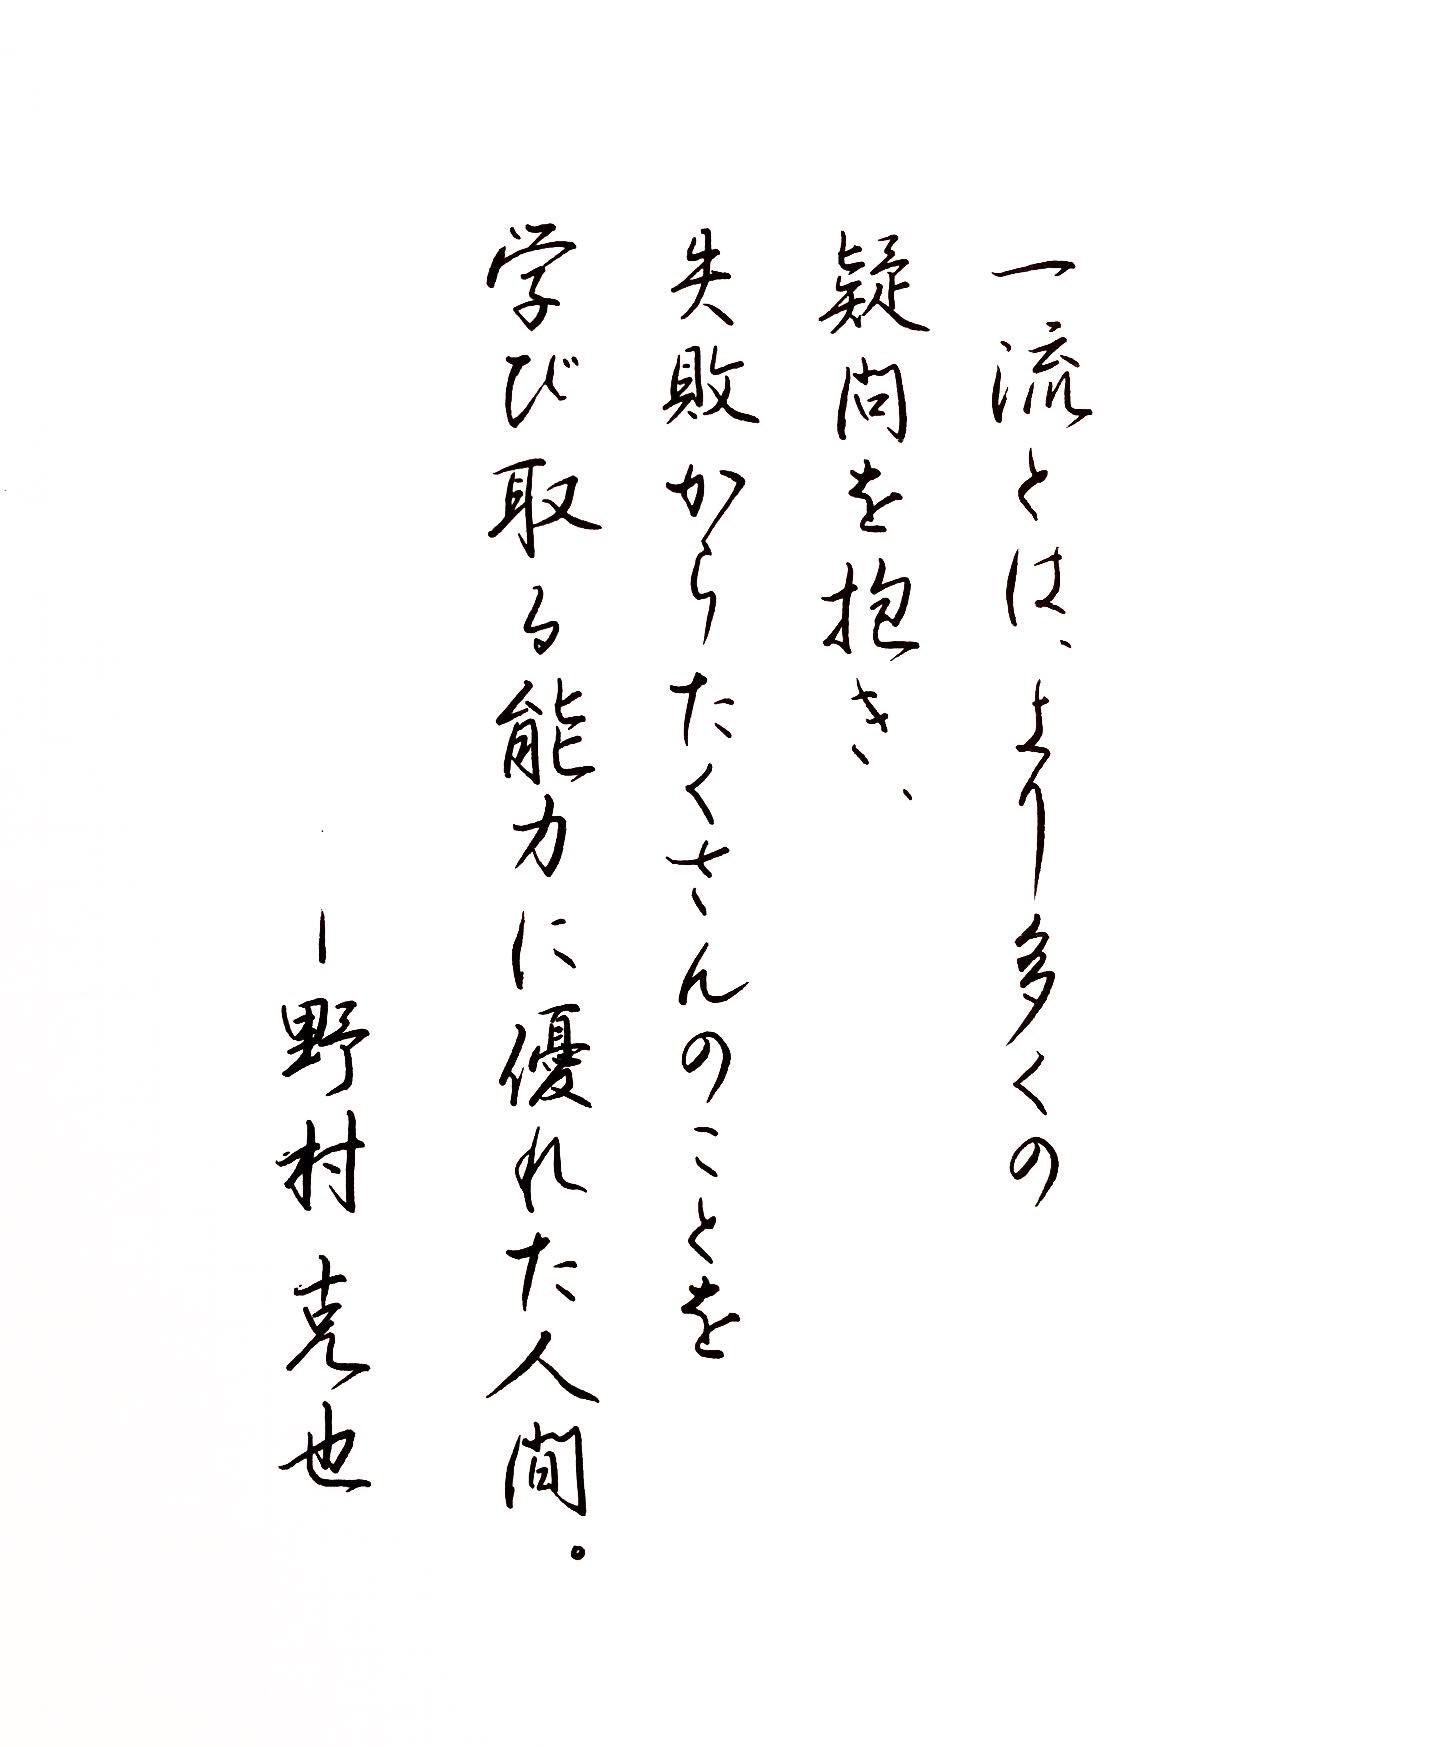 一流とは、より多くの
疑問を抱き、
失敗からたくさんのことを
学び取る能力に優れた人間。
ー野村克也